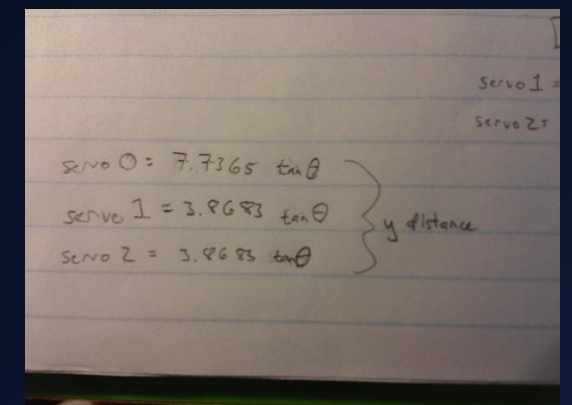 servo 1 =
servo 2=
servo 0 = 7.7365 tan θ
servo 1 = 3.8683 tan θ
servo 2 = 3.8683 tan θ
y distance